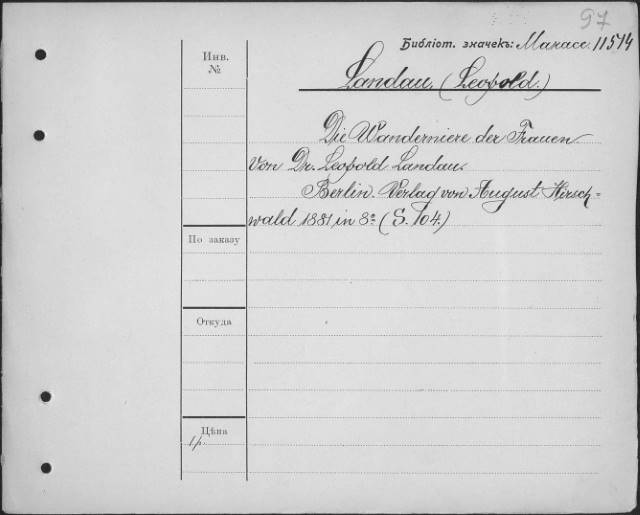 97
Библіот. значекъ: Манасс. 11514
Инв.
№
Landau. (Leopold.)
Die Wanderniere der Frauen
von Dr. Leopold Landau.
Berlin. Verlag von August Hirsch-
wald 1881 in 8º (S. 104.)
По заказу
Откуда
Цѣна
1р.